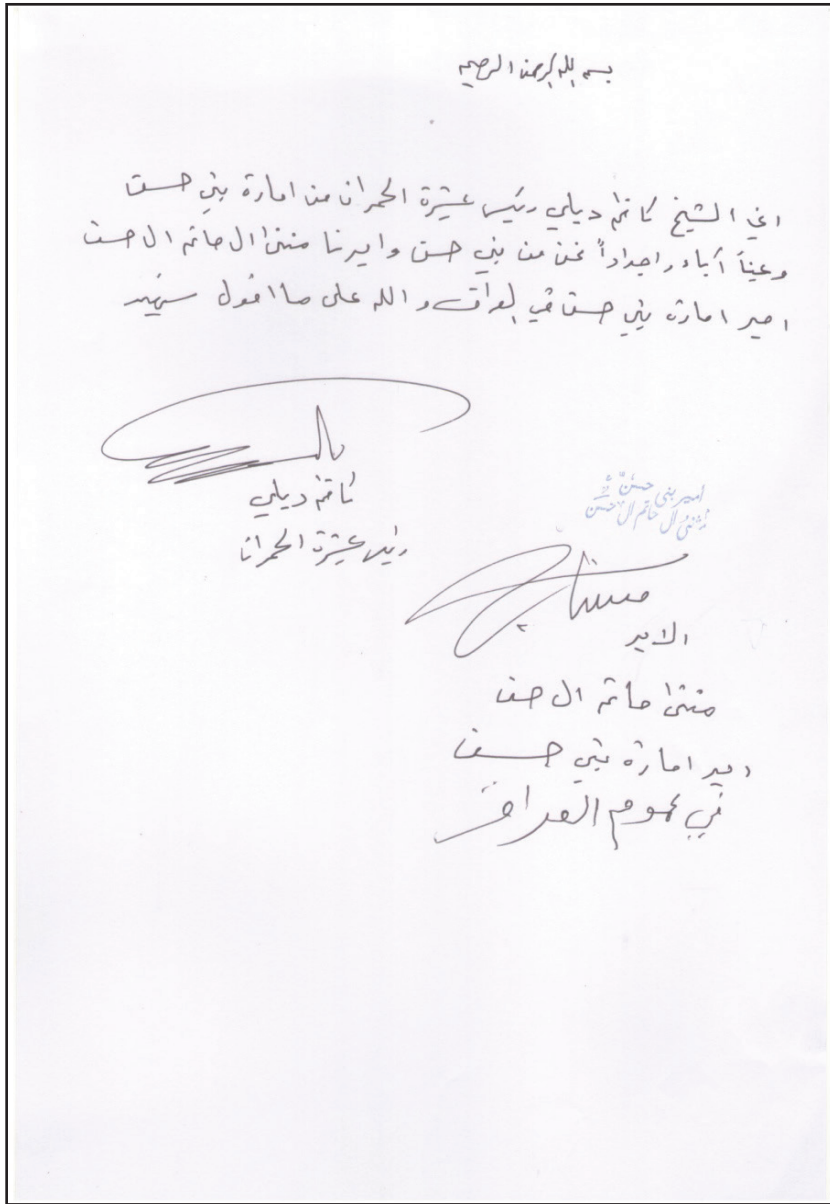 بسم الله الرحمن الرحيم
اني الشيخ كاظم ديلي رئيس عشيرة الحمران من امارة بني حسن
وعيناً آباء واجداداً نحن من بني حسن واميرنا مثنى ال حاتم ال حسن
امير امارة بني حسن في العراق والله على ما اقول شهيد
كاظم ديلي
رئيس عشيرة الحمران
امير بني حسن
مثنى ال حاتم ال حسن
الامير
مثنى حاتم ال حسن
امير امارة بني حسن
في عموم العراق